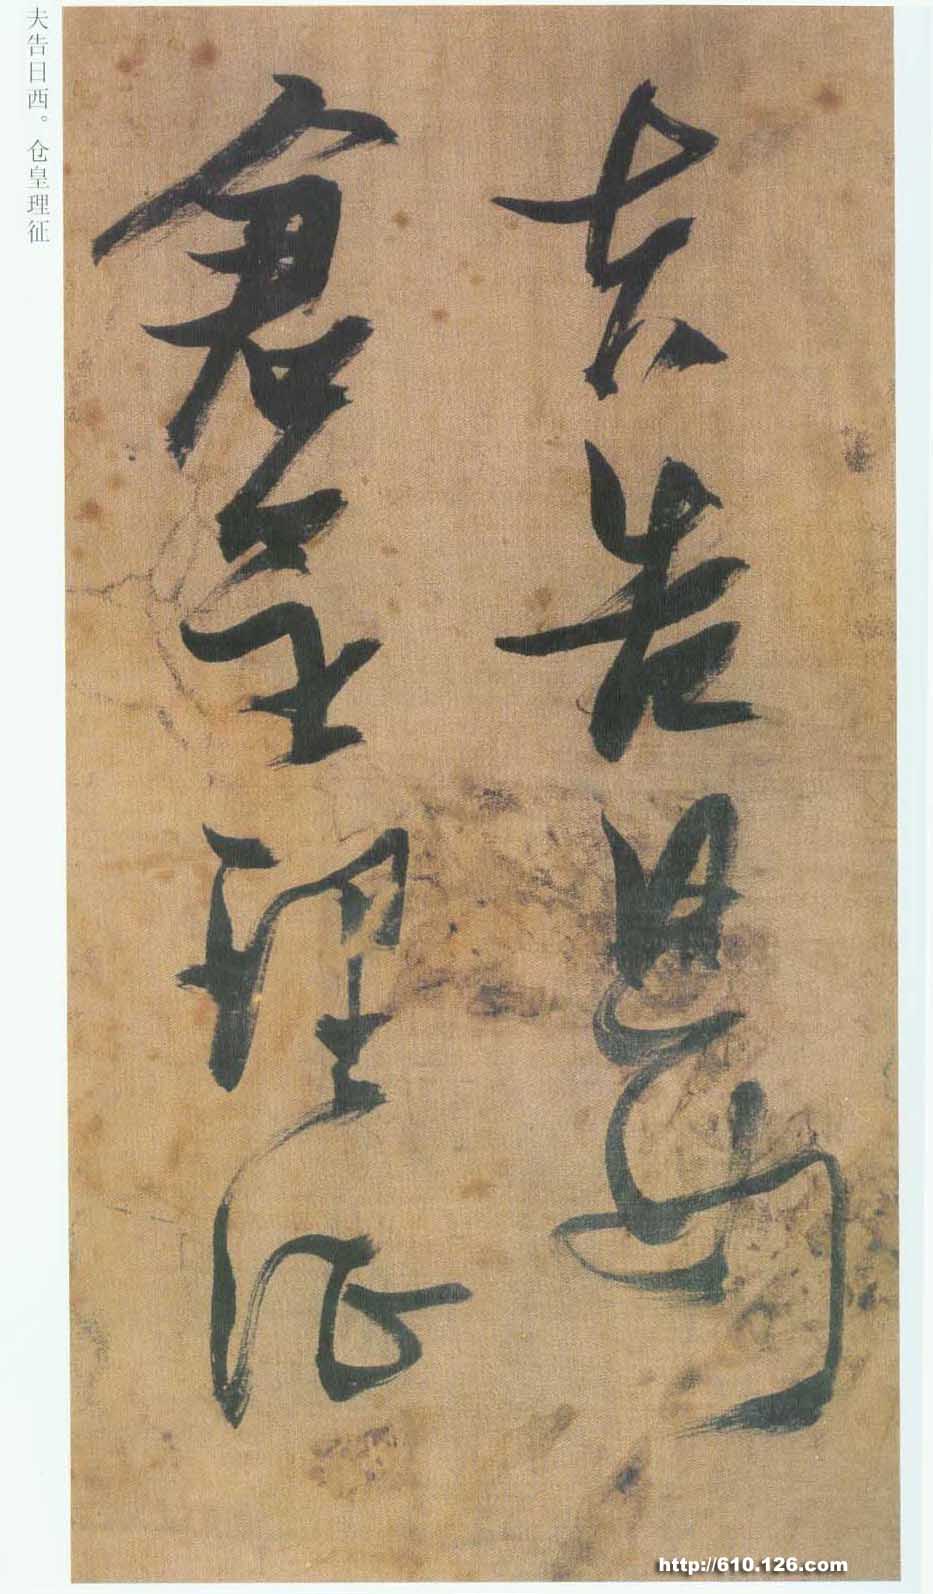 夫告日西
倉皇理征
夫告日西。仓皇理征
http://610.126.com